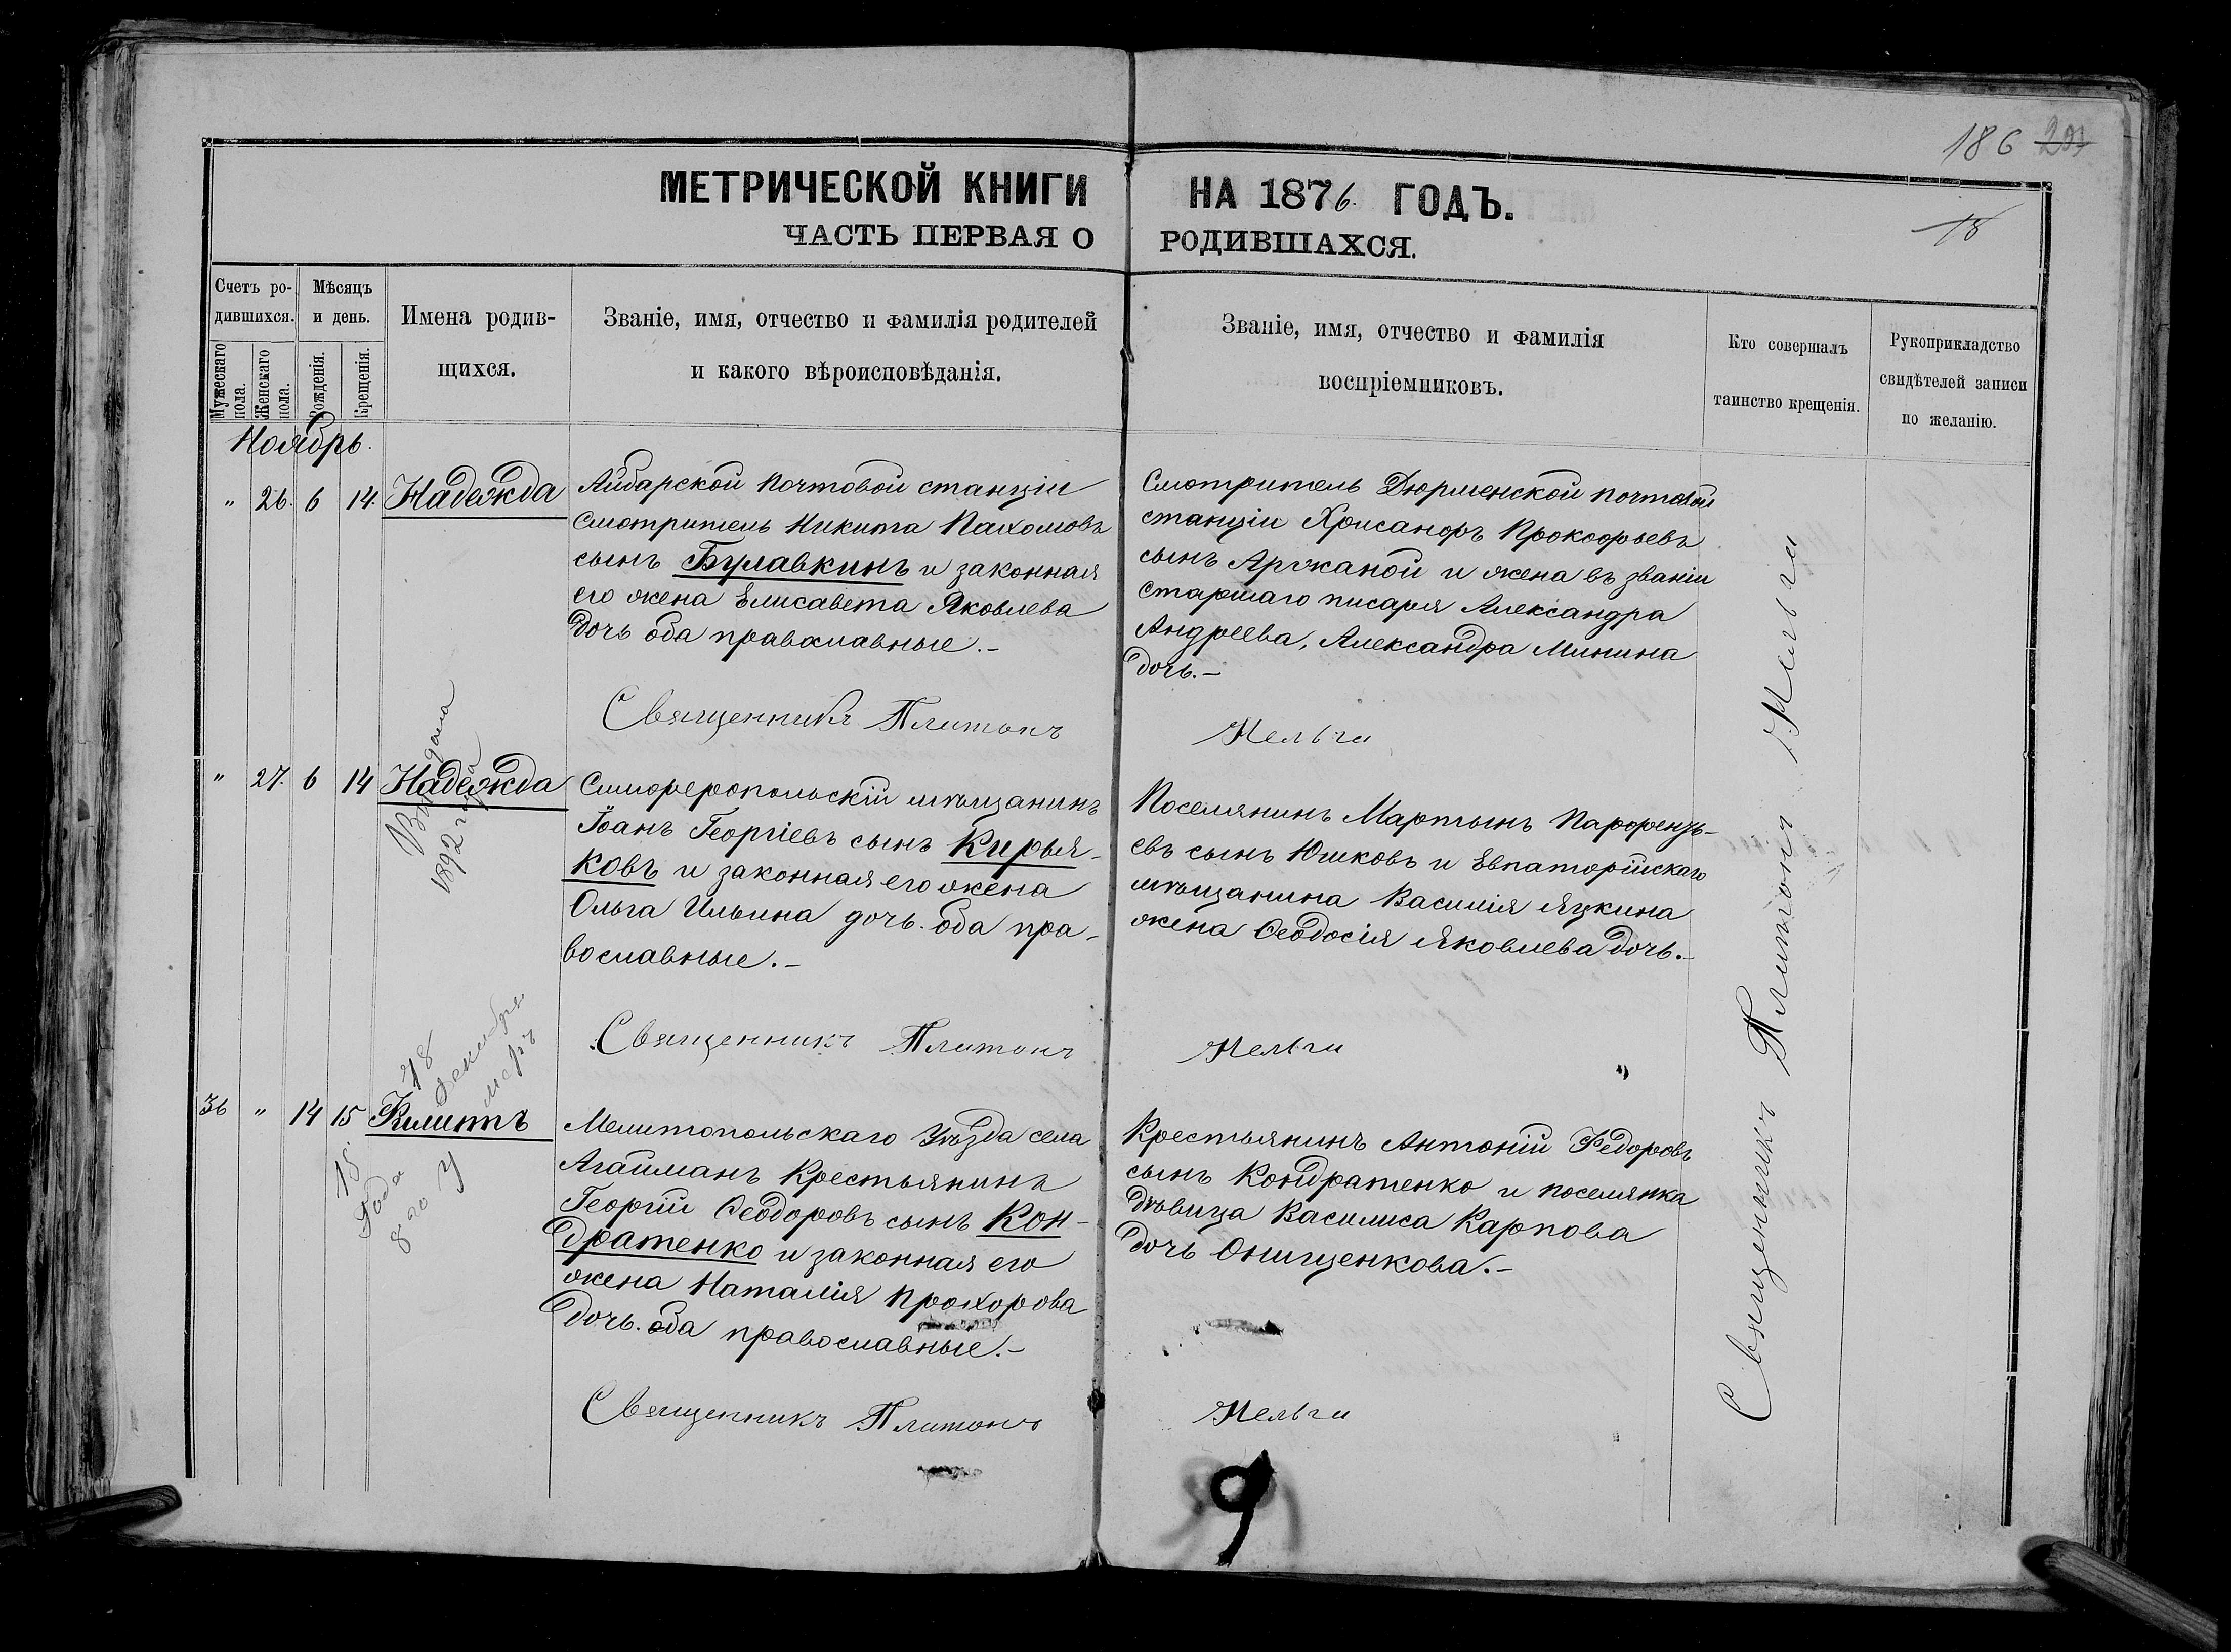 186 203
18
МЕТРИЧЕСКОЙ КНИГИ НА 1876. ГОДЪ.
ЧАСТЬ ПЕРВАЯ О РОДИВШАХСЯ.
Счетъ ро-
дившихся.
Мужескаго пола.
Женскаго пола.
Мѣсяцъ
и день.
Рожденія.
Крещенія.
Имена родив-
щихся.
Званіе, имя, отчество и фамилія родителей
и какого вѣроисповѣданія.
Званіе, имя, отчество и фамилія
воспріемниковъ.
Кто совершалъ
таинство крещенія.
Рукоприкладство
свидѣтелей записи
по желанію.
Ноябрь.
" 26. 6 14. Надежда
Айбарской почтовой станціи
смотритель Никита Пахомовъ
сынъ Булавкинъ и законная
его жена Елисавета Яковлева
дочь оба православные.-
Смотритель Дюрменской почтовой
станціи Хрисанфъ Прокофьевъ
сынъ Аржаной и жена въ званіи
старшаго писаря Александра
Андреева, Александра Минина
дочь.-
Священникъ Платонъ
" 27. 6 14 Надежда
1892 года
Симферопольскій мѣщанинъ
Іоанъ Георгіевъ сынъ Кирья-
ковъ и законная его жена
Ольга Ильина дочь. оба пра-
вославные.-
Поселянинъ Мартынъ Парфенть-
евъ сынъ Юшковъ и Евпаторійскаго
мѣщанина Василія Яцкина
жена Ѳеодосія Яковлева дочь.-
Священникъ Платонъ
36 " 14 15 Климтъ
18
Декабря
18
года
Мелитопольскаго Уѣзда села
Агайманъ Крестьянинъ
Георгій Ѳеодоровъ сынъ Кон-
дратенко и законная его
жена Наталія Прохорова
дочь. оба православные.-
Крестьянинъ Антоній Федоровъ
сынъ Кондратенко и поселянка
дѣвица Василиса Карпова
дочь Онищенкова.-
Священникъ Платонъ
Священникъ Платонъ
9